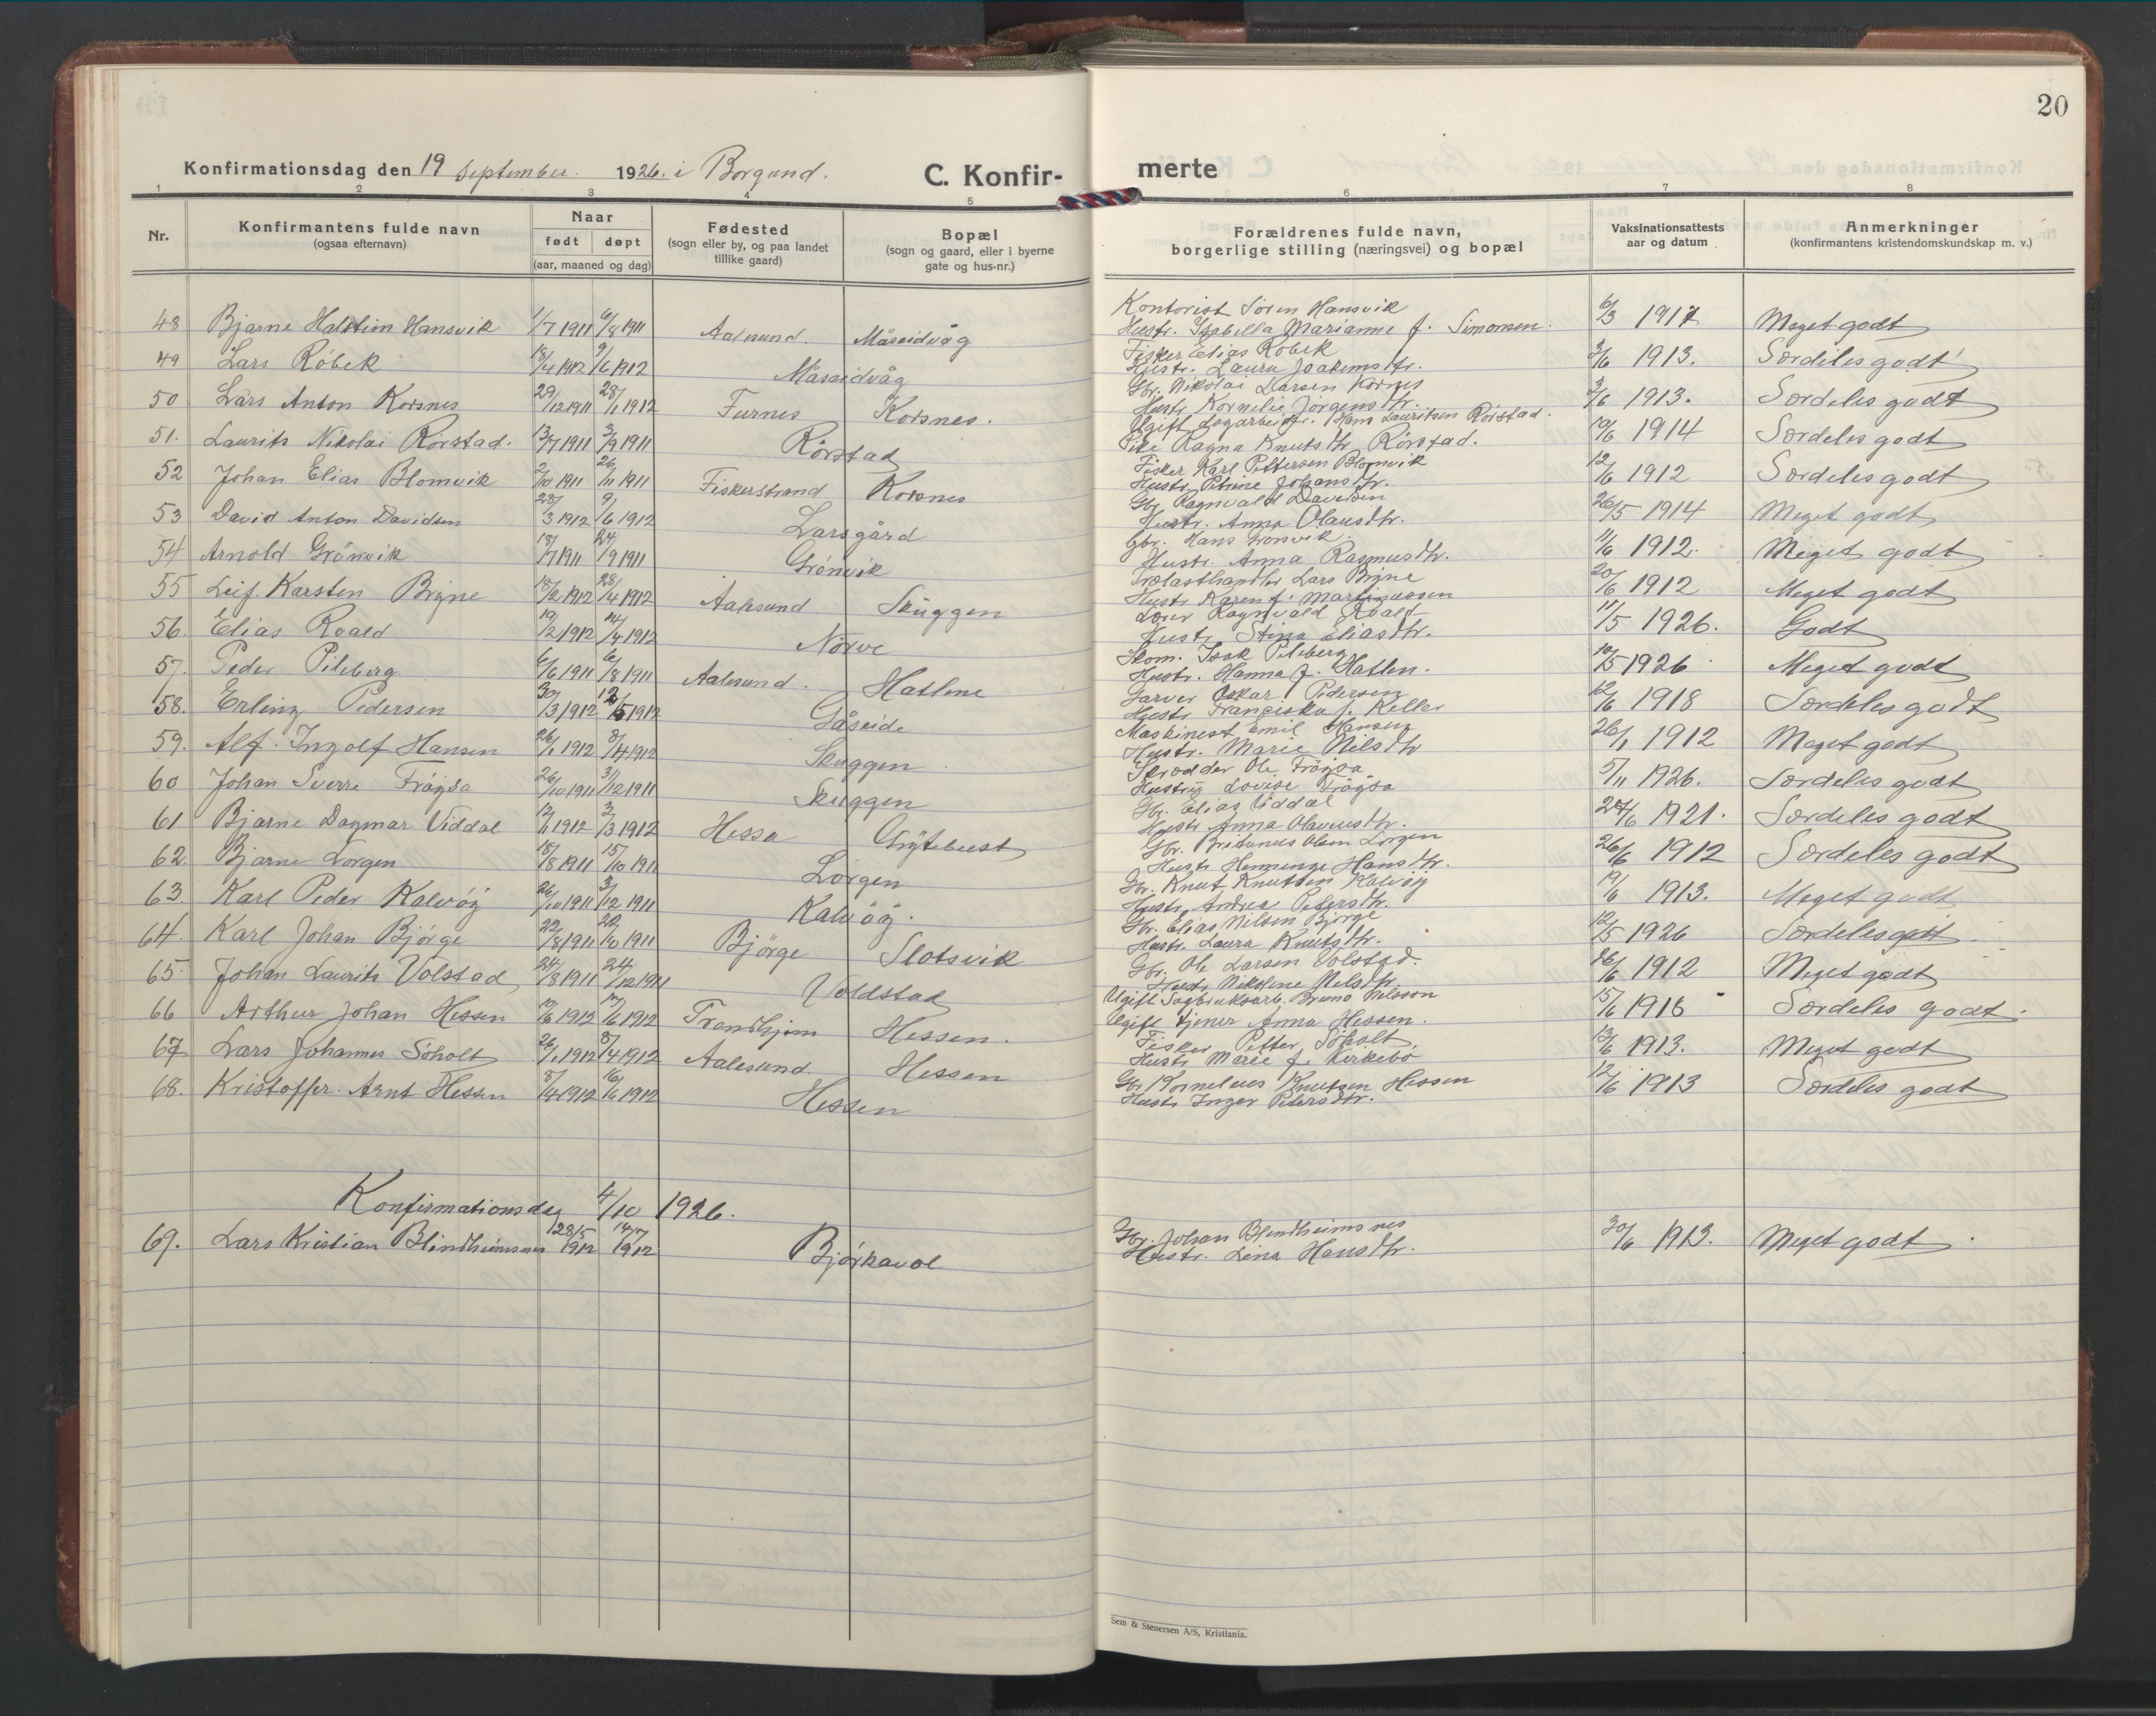 20
Konfirmationsdag den 19 September. 1926. i Borgund. C. Konfir-merte
1 2 3 4 5 6 7 8
Nr. Konfirmantens fulde navn (ogsaa efternavn) Naar født døpt (aar, maaned og dag) Fødested (sogn eller by, og paa landet tillike gaard) Bopæl (sogn og gaard, eller i byerne gate og hus-nr.) Forældrenes fulde navn, borgerlige stilling (næringsvei) og bopæl Vaksinationsattests aar og datum Anmerkninger (konfirmantens kristendomskundskap m. v.)
48 Bjarne Halstein Hansvik 1/7 1911 6/8 1911 Aalesund. Måseidvåg Kontorist Søren Hansvik
Hustr. Isabella Marianne f. Simonsen. 6/3 1917 Meget godt
49 Lars Röbek 18/4 1912 9/6 1912 Måseidvåg Fisker Elias Robek
Hustr. Laura Joakimsdtr. 3/6 1913. Særdeles godt
50 Lars Anton Korsnes 29/12 1911 28/1 1912 Furnes Korsnes. Gbr. Nikolai Larsen Korsnes
Hustr. Kornelie Jörgensdtr. 3/6 1913. Særdeles godt
51. Laurits Nikolai Rörstad. 13/7 1911 3/9 1911 Rörstad Ugift Dagarbeidr. Hans Lauritsen Rörstad.
Pike Ragna Knutsdtr Rörstad. 10/6 1914 Særdeles godt
52 Johan Elias Blomvik 2/10 1911 26/11 1911 Fiskerstrand Korsnes Fisker Karl Pettersen Blomvik
Hustr. Petrine Johansdtr. 12/6 1912 Særdeles godt
53 David Anton Davidsen 28/3 1912 9/6 1912 Larsgård Gbr Ragnvald Davidsen
Hustr. Anna Olausdtr. 26/5 1914 Meget godt
54 Arnold Grönvik 18/7 1911 24/9 1911 Grönvik Gbr. Hans Grönvik.
Hustr. Anna Rasmusdtr. 11/6 1912. Meget godt
55 Leif. Karsten Bryne 18/2 1912 28/4 1912 Aalesund Skuggen Trælasthandler Lars Bryne
Hustr. Karen f. Martinussen 20/6 1912 Meget godt
56. Elias Roald 19/2 1912 14/4 1912 Nörve Lærer Ragnvald Roald
Hustr. Stina Eliasdtr. 11/5 1926. Godt
57. Peder Pileberg. 6/6 1911 6/8 1911 Aalesund. Hatlene Skom. Isak Pileberg
Hustr. Hanna f. Hatlen. 10/5 1926 Meget godt
58. Erling Pedersen 30/3 1912 12/5 1912 Gåseide Garver Oskar Pedersen
Hustr. Franciska f. Keller 12/6 1918 Særdeles godt
59. Alf. Ingolf Hansen 26/1 1912 8/4 1912 Skuggen Maskinest Emil Hansen
Hustr. Marie Nilsdtr 26/1 1912 Meget godt
60 Johan Sverre Fröysa 26/10 1911 31/12 1911 Skuggen Skrædder Ole Fröysa
Hustru Lovise Fröysa 5/11 1926. Særdeles godt
61. Bjarne Dagmar Viddal 12/1 1912 3/3 1912 Hessa Grytebust Gbr. Elias Viddal
Hustr Anna Olavusdtr. 24/6 1921. Særdeles godt
62. Bjarne Lorgen 18/8 1911 15/10 1911 Lörgen Gbr. Olsen Lorgen
Hustr Hansdtr. 26/6 1912 Særdeles godt
63. Karl Peder Kalvöy 26/10 1911 3/12 1911 Kalvöy. Gbr. Knut Knutsen Kalvöy
Hustr. Andrea Petersdtr. 19/6 1913. Meget godt
64. Karl Johan Bjørge 22/8 1911 22/10 1911 Björge Slotsvik Gbr. Elias Nilsen Bjørge
Hustr. Laura Knutsdtr. 12/5 1926 Særdeles godt
65. Johan Laurits Volstad 24/8 1911 24/12 1911 Voldstad Gbr. Ole Larsen Volstad.
Hustr. Nikoline Nilsdtr. 26/6 1912 Meget godt
66 Arthur Johan Hessen 10/6 1912 Trondhjem Hessen. Ugift Bruno Nilsson
Ugift tjener Anna Hessen. 15/6 1918 Særdeles godt.
67 Lars Johannes Söholt 26/1 1912 8/4 1912 Aalesund Hessen Fisker Petter Söholt
Hustr Marie f. Kirkebö 13/6 1913. Meget godt
68. Kristoffer. Arnt Hessen 8/4 1912 16/6 1912 Hessen Gbr. Kornelius Knutsen Hessen
Hustr Inger Petersdtr. 12/6 1913 Særdeles godt
Konfirmationsdag 4/10 1926.
69. Lars Kristian Blindheimsnes 28/5 1912 14/7 1912 Björkavol Gbr. Johan Blindheimsnes
Hustr. Lena Hansdtr. 30/6 1913. Meget godt.
Sem & Stenersen A/S, Kristiania.